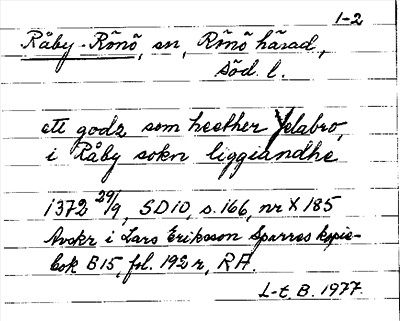 1-2
Råby-Rönö, sn, Rönö härad,
Söd. l.
ett godz som heether Yelabro,
i Råby sokn liggiandhe
1372 29/9, SD10, s. 166, nr X 185
Avskr i Lars Eriksson Sparres kopie-
bok B15, fol. 192 r, RA.
L-t. B. 1977.